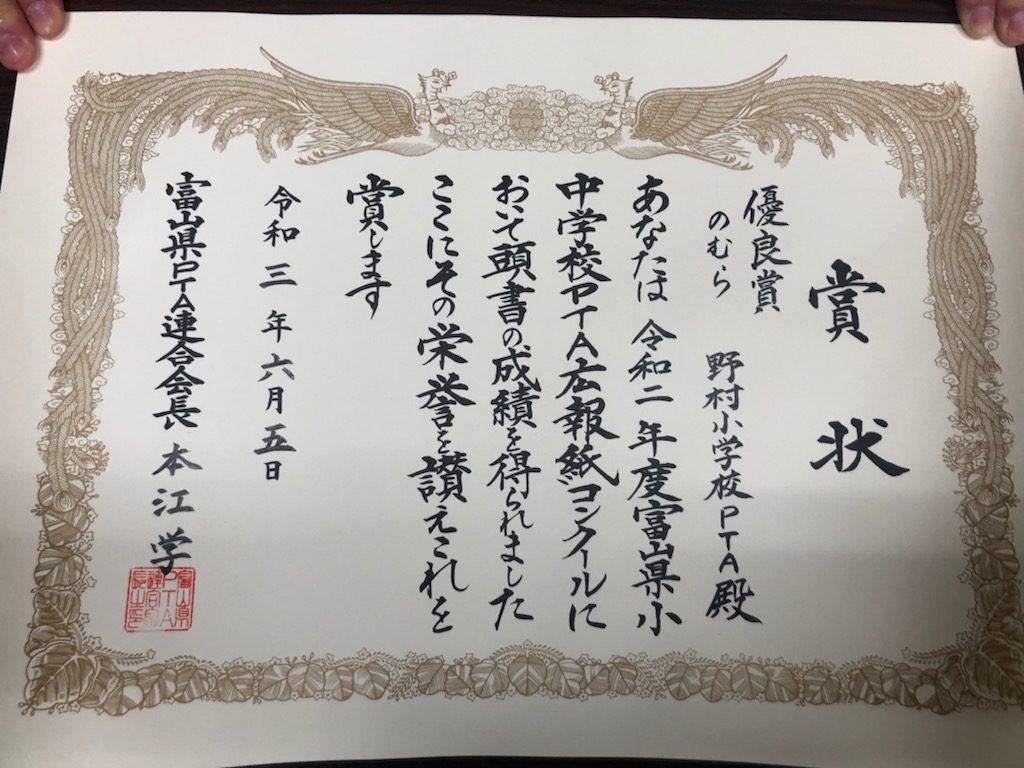 賞状
優良賞
のむら 野村小学校PTA殿
あなたは令和二年度富山県小
中学校PTA広報紙コンクールに
おいて頭書の成績を得られました
ここにその栄誉を讃えこれを
賞します
令和三年六月五日
富山県PTA連合会長 本江学